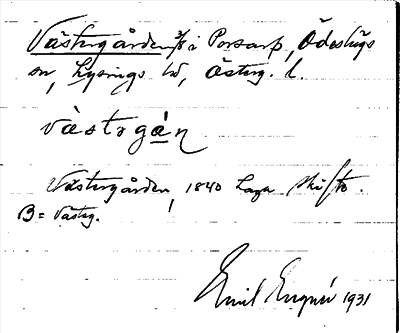 Västergården 3/8 i Porsarp, Ödeshögs
sn, Lysings hd, Österg. l.
västrgán
Västergården, 1840 Laga skifte.
B = Västerg.
Emil 1931